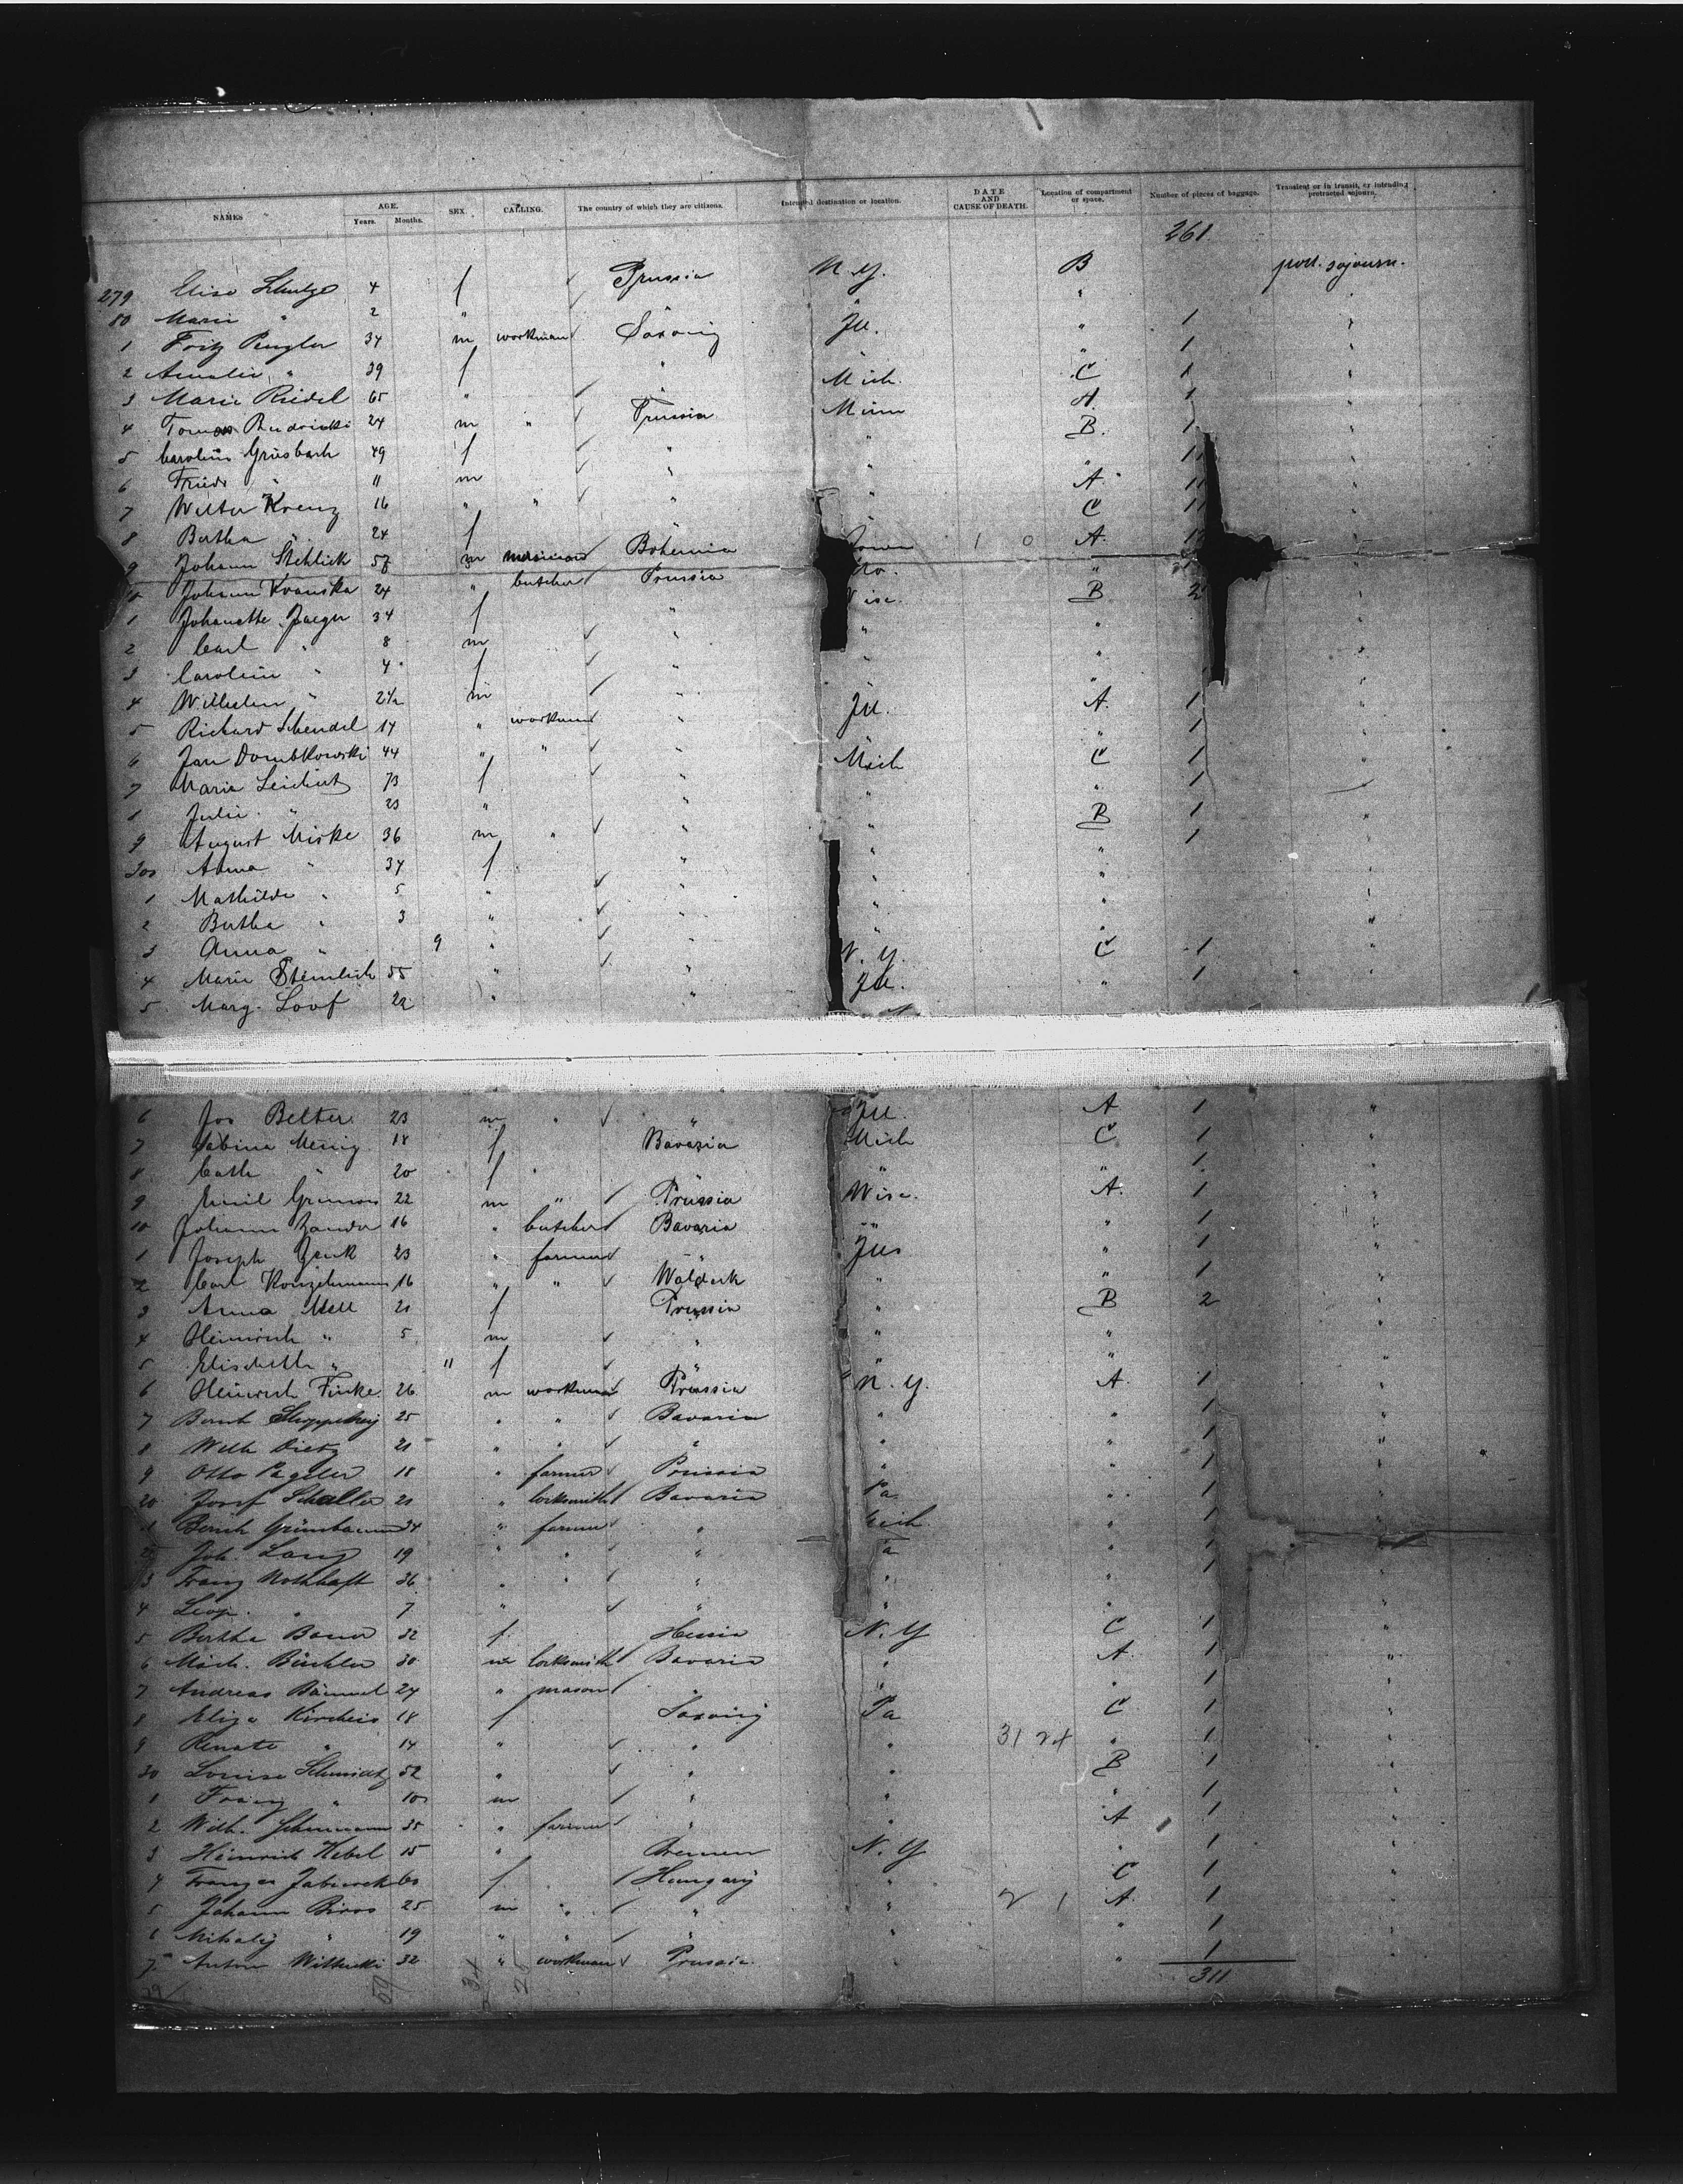 NAMES AGE. Years. Months. SEX. CALLING. The country of which they are citizens. Intended destination or location. DATE AND CAUSE OF DEATH. Location of compartment or space. Number of pieces of baggage. Transient or in transit, or intending protracted sojourn.
261
279 Elise Schulze 4 f Prussia N.Y. B prot. sojourn.
80 Marie " 2 " "
1 Fritz Pengler 34 m workman Saxony Ill. " 1 "
2 Amalie " 39 f " " 1 "
3 Marie Riedel 65 " " Mich. C 1 "
4 24 m " Prussia Minn A. 1 "
5 Caroline Griesbach 49 f " " B. 1 "
6 Friedr " 11 m " " " 1 "
7 Krenz 16 " " " " A. 1 "
8 Bertha " 24 f " " C 1 "
9 Johann Stehlick 57 m Bohemia Iowa 1 0 A. 1
10 Johann Kvanska 24 " butcher Prussia "
1 Johanette Jaeger 34 f " Wisc. B 2 "
2 Carl " 8 m " " " "
3 Carolin " 4 f " " " "
4 Wilhelm " 2 1/2 m " "
5 Richard Schendel 14 " workman " Ill. A. 1 "
6 Jan Dombkowski 44 " " " " " 1 "
7 Marie 73 f " Mich C 1 "
8 Julie " 23 " " " " 1
9 August Miske 36 m " " " B 1 "
300 34 f " " " 1 "
1 Mathilde " 5 " " " " "
2 Bertha " 3 " " " " "
3 Anna " 9 " " " " "
4 Marie 55 " " N.Y. C 1 "
5 Marg. Loof 22 " " Ill. " 1 "
6 Jos Belter 23 m " " Ill. A 1 "
7 Sabina 18 f Bavaria Mich C 1
8 Cath " 20 f " " " 1 "
9 Emil 22 m " Prussia Wisc. A. 1 "
10 Johann Zander 16 " butcher Bavaria " " 1 "
1 Joseph Zenk 23 " farmer " Ills " 1 "
2 Carl Konzelmann 16 " " Waldeck " " 1 "
3 Anna Mell 21 f Prussia " B 2 "
4 Heinrich " 5 m " " " "
5 Elisabeth " 11 f " " "
6 Heinrich Finke 26 m workman Prussia N.Y. A. 1 "
7 25 " " Bavaria " " 1 "
8 Wilh Dietz 21 " " " " " 1 "
9 Otto Pageler 18 " farmer Prussia " " 1 "
20 Josef Schaller 21 " locksmith Bavaria Pa " 1 "
1 Grünbaum 34 " farmer " Mich. " 1 "
Joh. Lang 19 " " " Pa " 1
3 Franz Nothhaft 36 " " " " " 1
4 Leop. " 7 " " " " "
5 Bertha Bauer 32 f Hessia N.Y C 1 "
6 Mich. Büchler 30 m locksmith Bavaria " A. 1 "
7 Andreas 24 " mason " " " 1 "
8 Eliza Kircheis 18 f Saxony Pa C 1 "
9 Renate " 14 " " " 31 24 " 1 "
30 Louise Schmidt 52 " " " B 1 "
1 Franz " 10 m " " " 1 "
2 Wilh. 35 " farmer " " A 1 "
3 Heinrich Hebel 15 " Bremen N.Y " 1 "
4 60 f Hungary " C 1 "
5 Johann Biros 25 m " " " 2 1 A. 1 "
6 Mihaly " 19 " " " " " 1 "
7 Anton 32 " workman Prussia " " 1 "
311